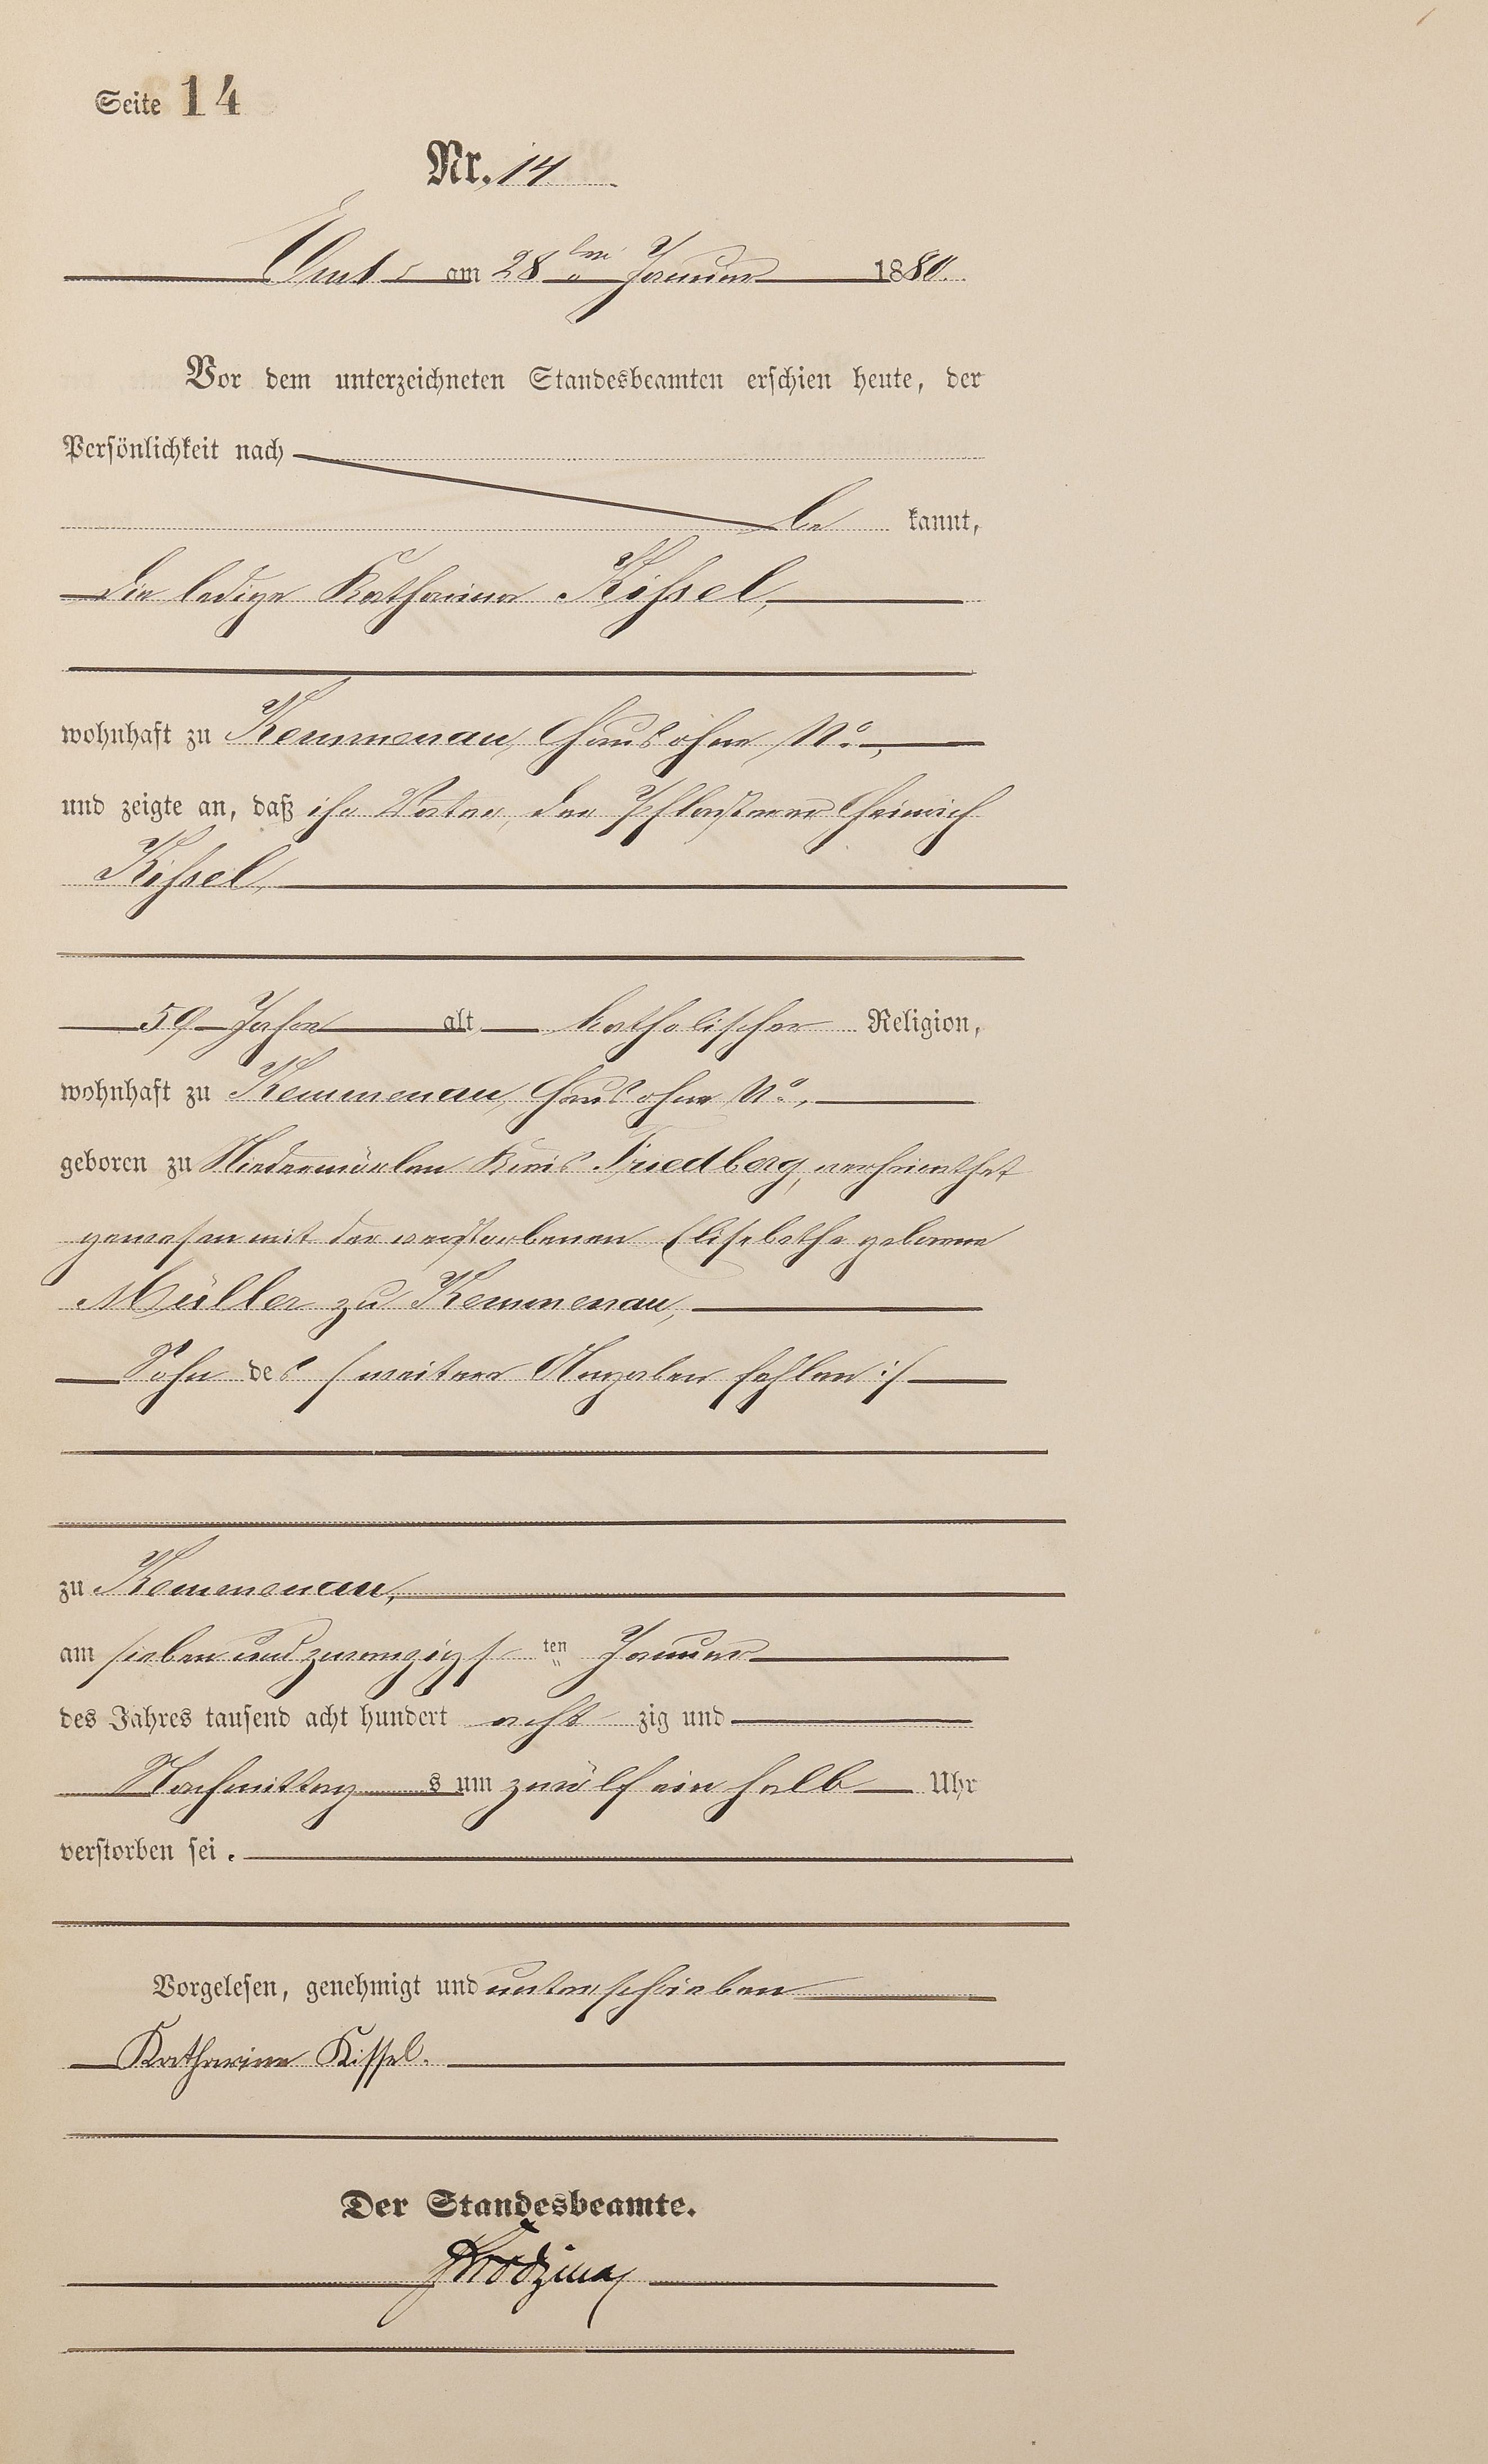 Seite 14
Nr. 14
Ems am 28ten Januar 1880.
Vor dem unterzeichneten Standesbeamten erschien heute, der
Persönlichkeit nach
be kannt,
die ledige Katharina Kissel,
wohnhaft zu Kemmenau, Haus ohne No.,
und zeigte an, daß ihr Vater, der Pflasterer Heinrich
Kissel,
59 Jahre alt, katholischer Religion,
wohnhaft zu Kemmenau, Haus ohne No.,
geboren zu Niedermörlen Kreis Friedberg, verheirathet
gewesen mit der verstorbenen Elisabetha geborene
Müller zu Kemmenau,
Sohn des /: weitere Angaben fehlen :/
zu Kemmenau,
am sieben und zwanzigsten Januar
des Jahres tausend acht hundert acht zig und
Nachmittags um zwölf ein halb Uhr
verstorben sei.
Vorgelesen, genehmigt und unterschrieben
Katharina Kissel.
Der Standesbeamte.